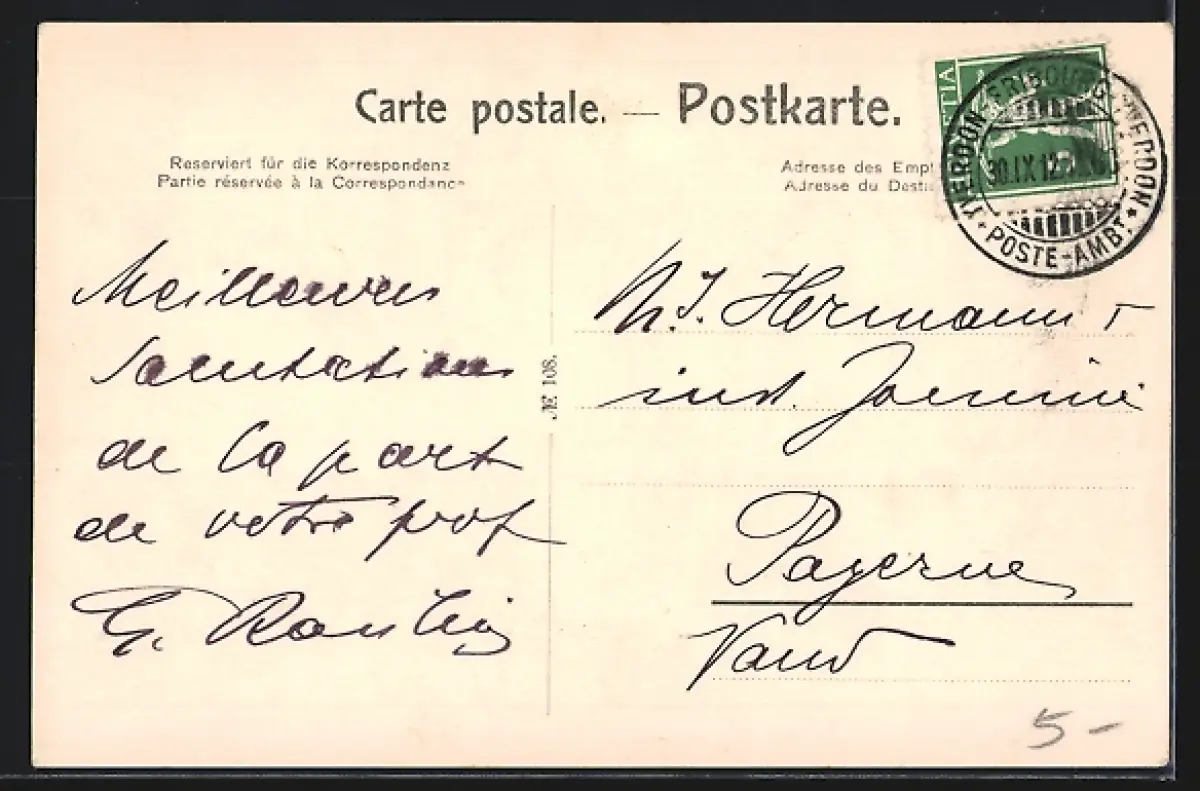 Carte postale. — Postkarte.
Reserviert für die Korrespondenz
Partie réservée à la Correspondance
Adresse des Empf
Adresse du Desti
ETIA
YVERDON-FRIBOURG-YVERDON
30.IX.12
* POSTE-AMBT. *
Meilleures
Salutations
de la part
de votre prof
G.
№ 108.
Hermann
inst.
Payerne
Vaud
5-